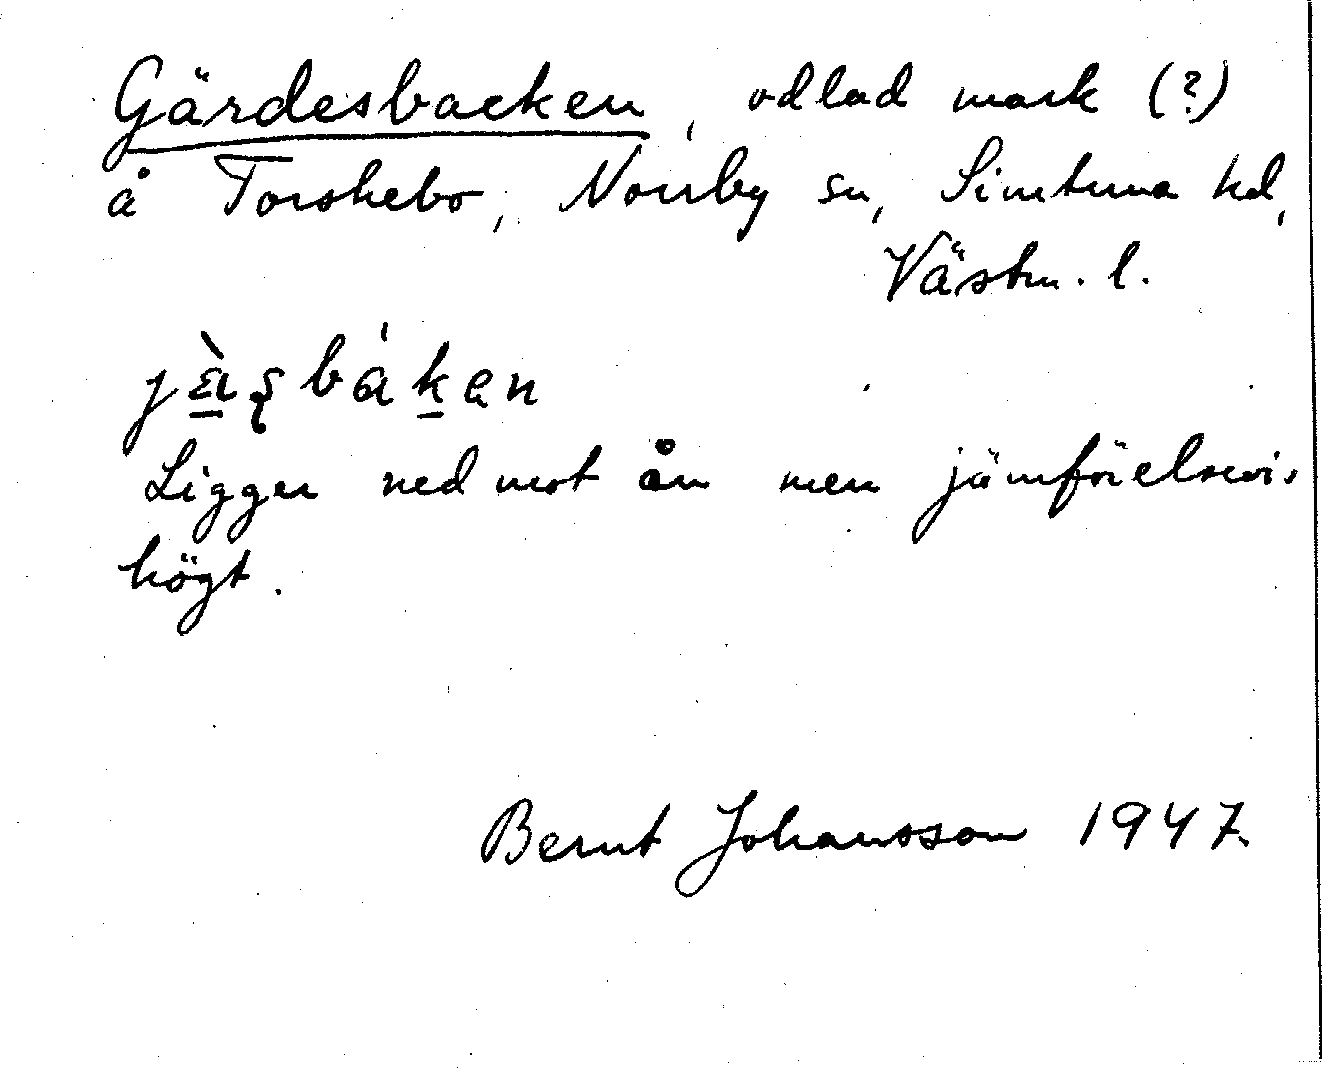 Gärdesbacken, odlad mark (?)
å Torshebo, Norrby sn, Simtuna hd,
Västm. l.
Ligger ned mot ån men jämförelsevis
högt.
Bernt Johansson 1947.